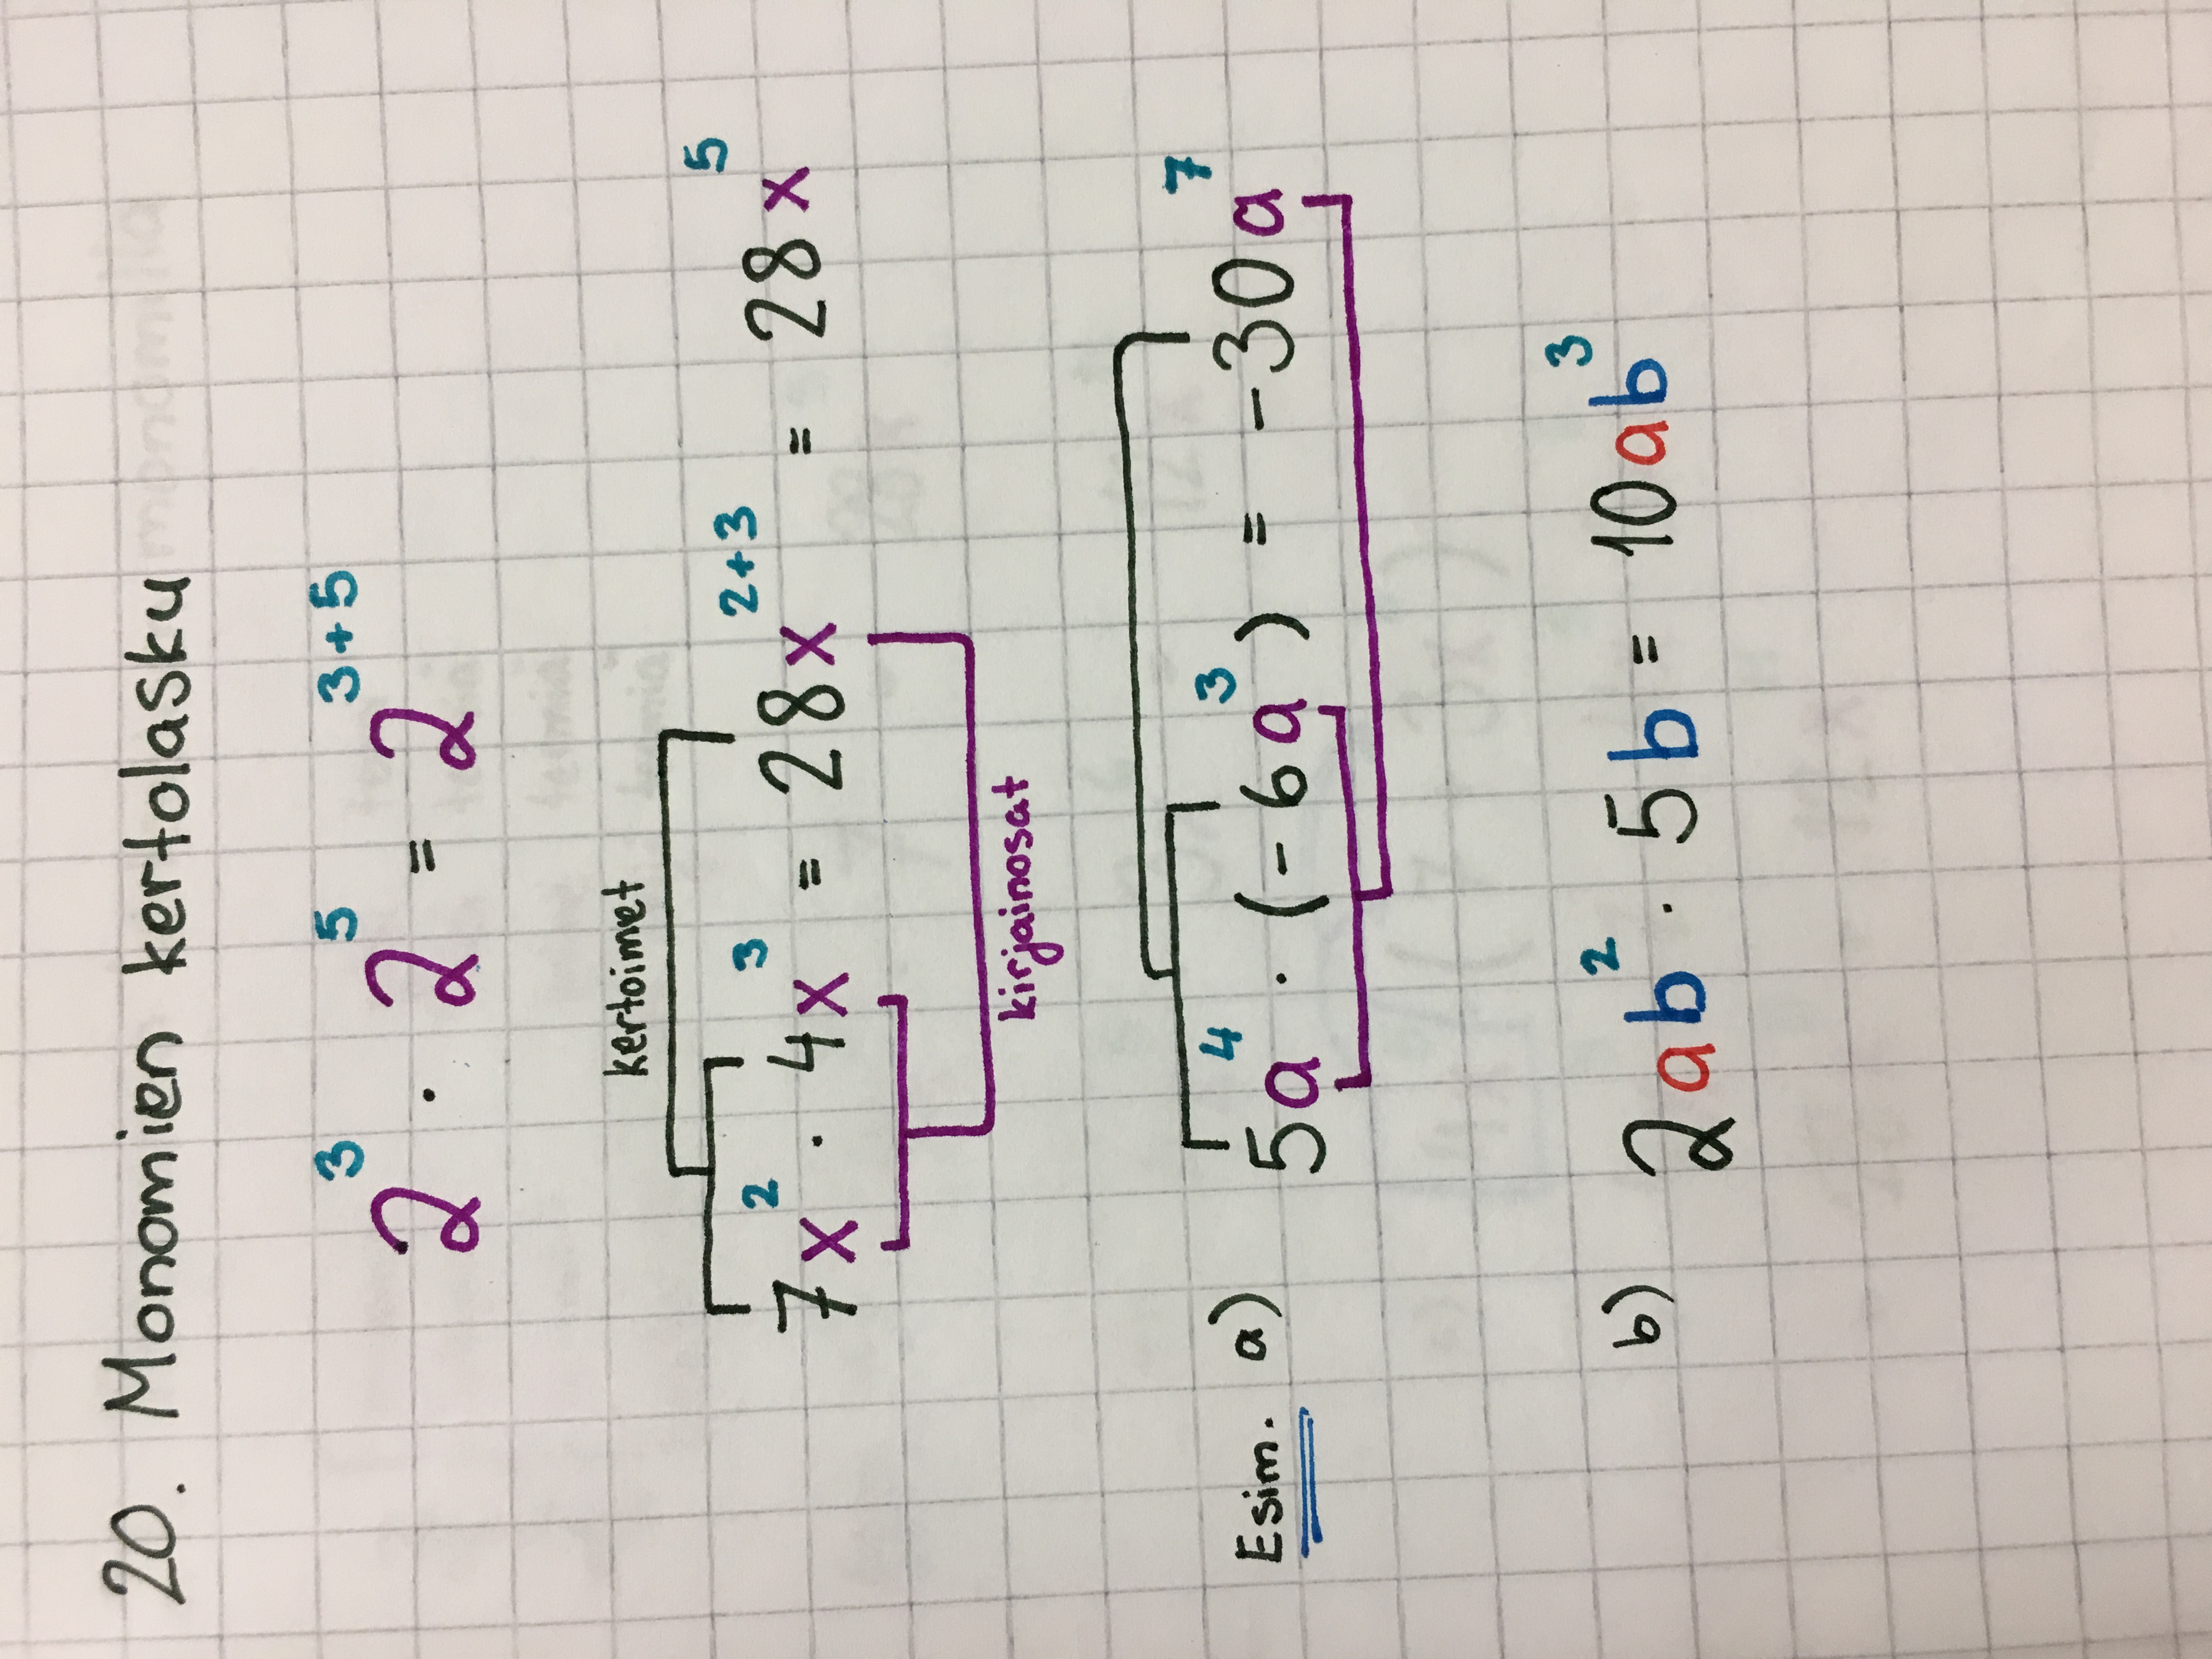 20. Monomien kertolasku
2³ · 2⁵ = 2³⁺⁵
kertoimet
7x² · 4x³ = 28x²⁺³ = 28x⁵
kirjainosat
Esim. a) 5a⁴ · (-6a³) = -30a⁷
b) 2ab² · 5b = 10ab³